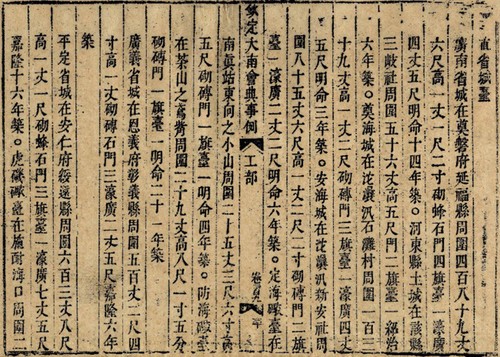 直省城臺
廣南省城在奠磐府延福縣周圍四百八十九丈
六尺高一丈一尺二寸砌蜂石門四旗臺一濠廣
四丈五尺明命十四年築。河東縣土城在該縣
三岐社周圍五十六丈高五尺門二旗臺一紹治
六年築。奠海城在沱㶞汛石灘村周圍一百三
十九丈高一丈二尺砌磚門三旗臺一濠廣四丈
五尺明命三年築。安海城在沱㶞汛新安社周
圍八十五丈六尺高一丈二尺二寸砌磚門二旗
臺一濠廣二丈二尺明命六年築。定海礮臺在
欽定大南會典事例 工部
南眞站東向之小山周圍二十五丈三尺六寸高
五尺砌磚門一旗臺一明命四年築。防海礮臺
在茶山之周圍二十九丈高八尺一寸五分
砌磚門一旗臺一明命二十一年築
廣義省城在思義府彰義縣周圍五百丈二尺四
寸高一丈砌磚石門三濠廣二丈五尺嘉隆六年
築
平定省城在安仁府綏遠縣周圍六百三丈八尺
高一丈一尺砌蜂石門三旗臺一濠廣七丈五尺
嘉隆十六年築。虎磯礮臺在施耐海口周圍二